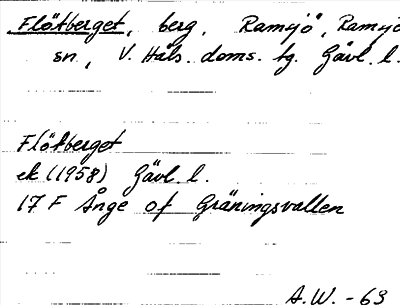 Flötberget, berg, Ramsjö, Ramsjö
sn., V. Häls. doms. tg. Gävl. l.
Flötberget
ek (1958) Gävl. l.
17 F Ånge of Gräningsvallen
A.W. - 63